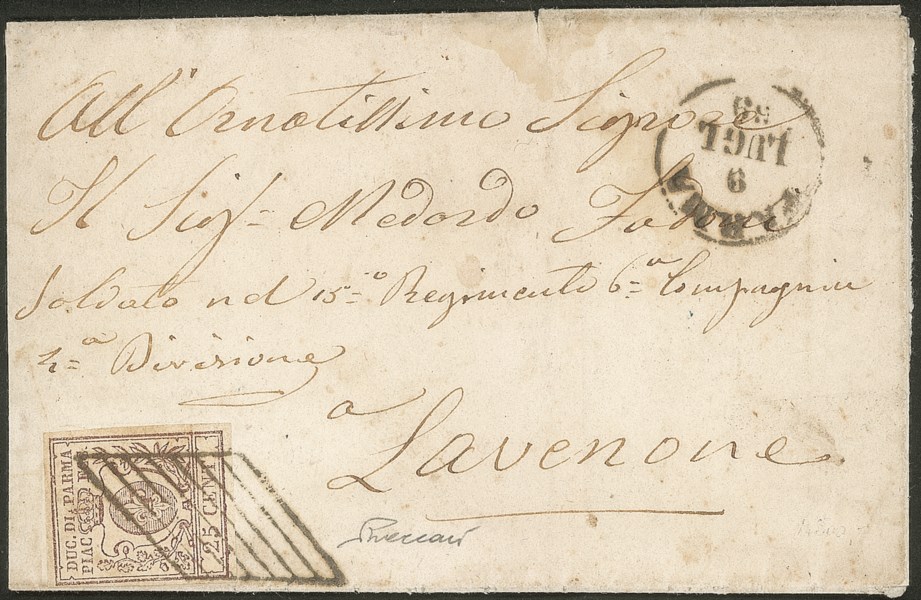 All' Ornatissimo Signore
Il Sigr= Medardo
Soldato nel 15=º Regimento 6=ª Compagnia
4=ª Divisione
a
Lavenone
PARMA
9
LUGL
59
DUC. DI PARMA
PIAC. ECC.
25 CENT